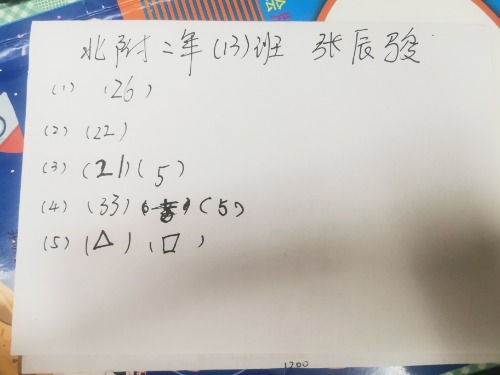 北附二年(13)班 张辰骏
(1) (26)
(2) (22)
(3) (21)(5)
(4) (33) (5)
(5) (△) (□)
1200